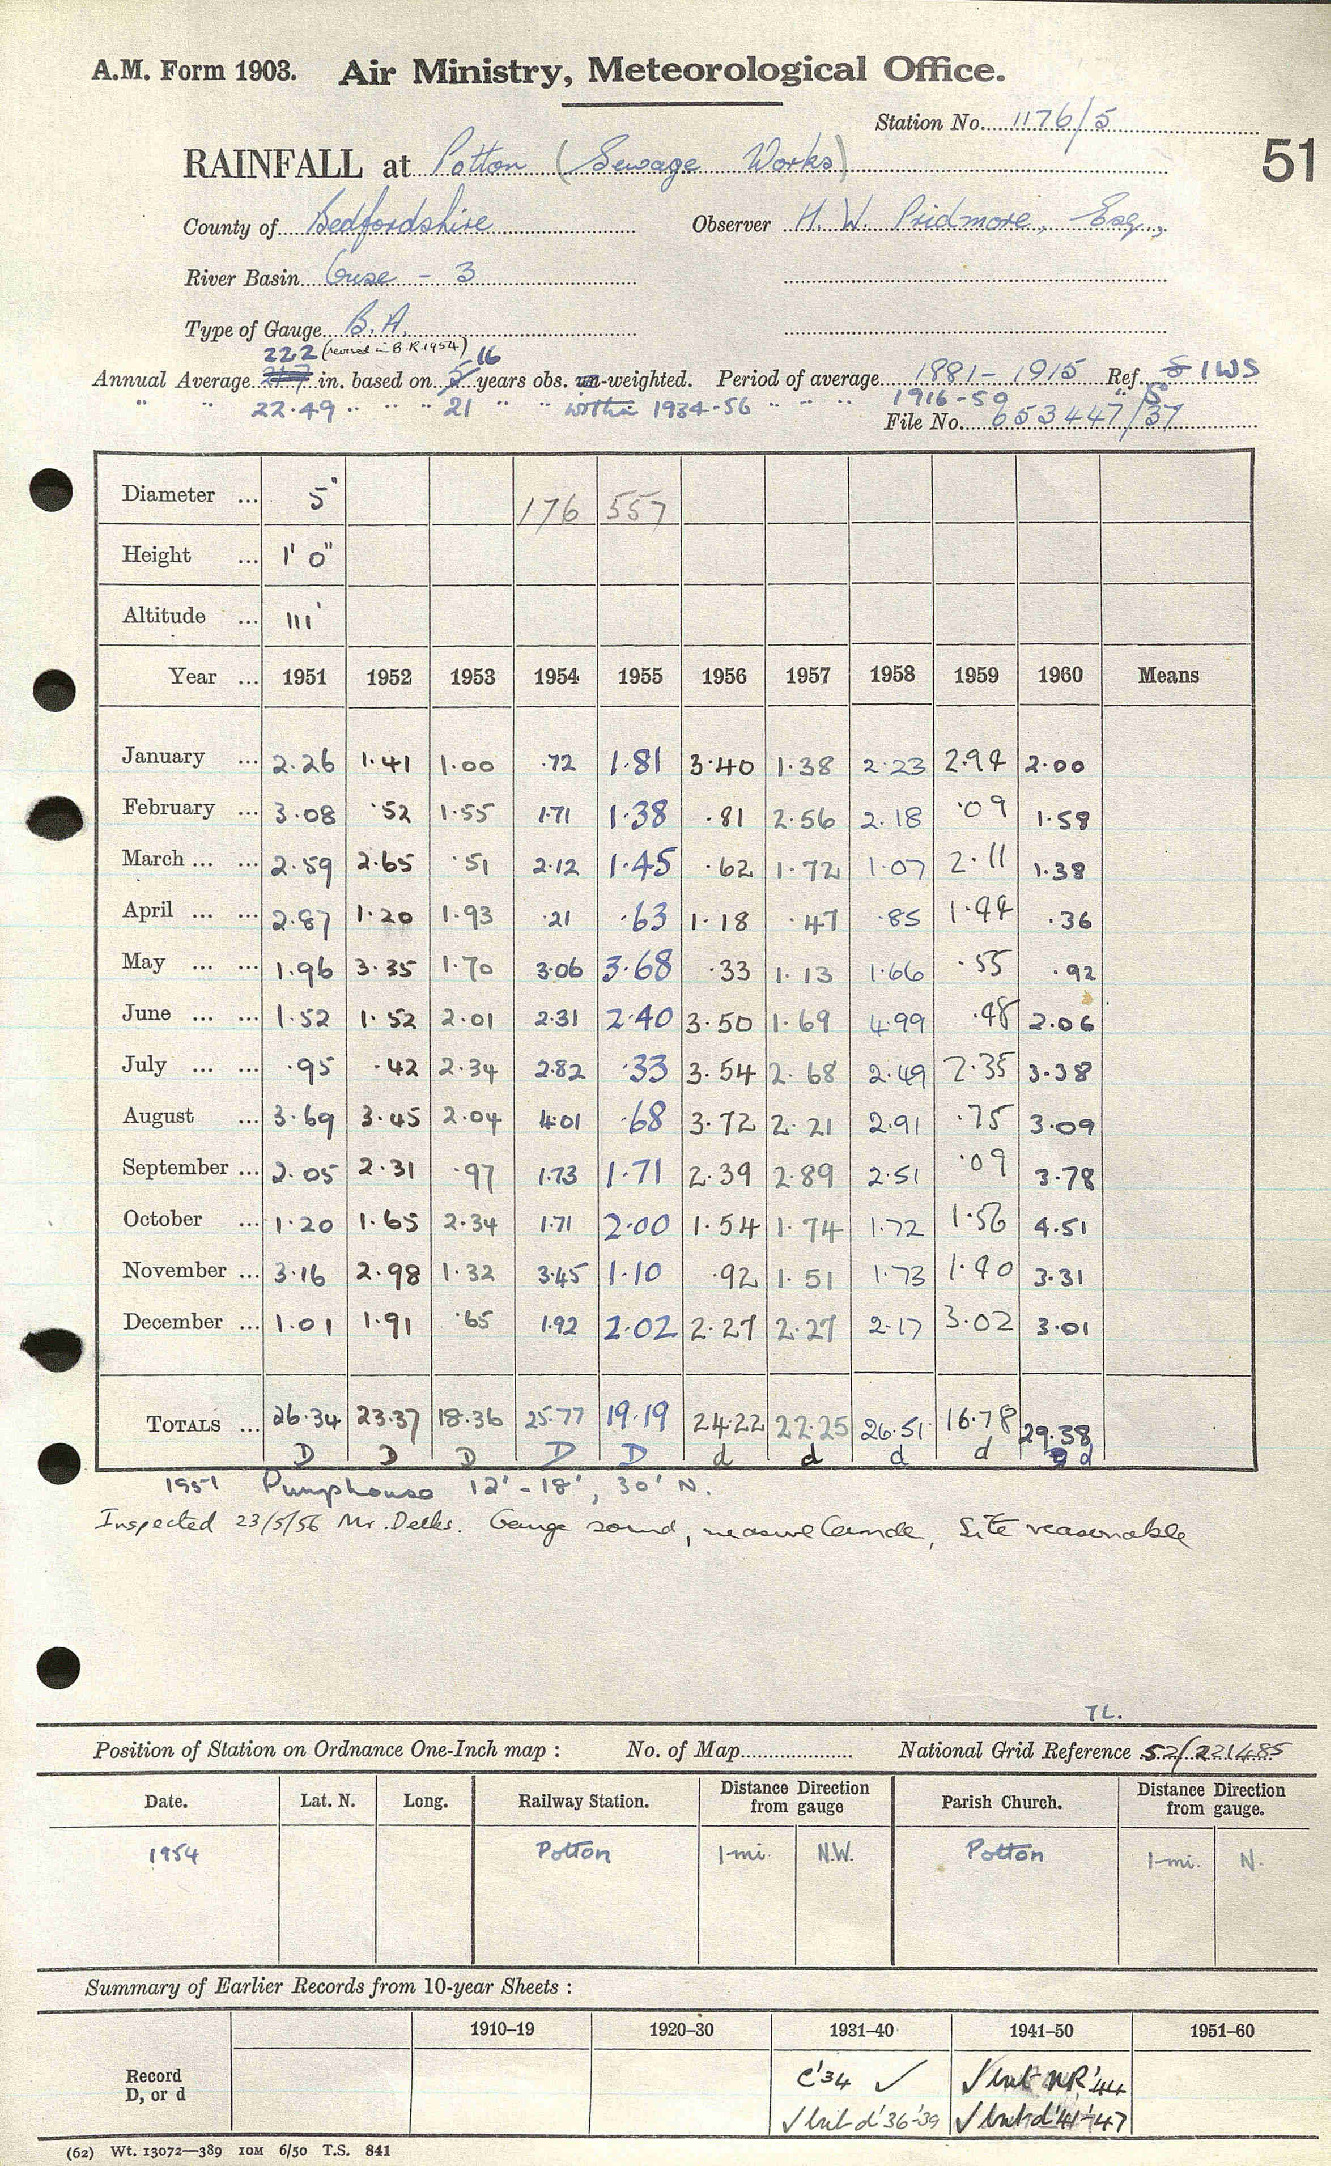 A.M. Form 1903. Air Ministry, Meteorological Office.
Station No. 1176/5
51
RAINFALL at Potton (Sewage Works)
County of Bedfordshire Observer H. W. Pridmore, Esq.,
River Basin Ouse - 3
Type of Gauge B.A.
22.2 (revised in B.R. 1954) 16
Annual Average 21.7 in. based on 5 years obs. un-weighted. Period of average 1881-1915 Ref. S IWS
" " 22.49 " " " 21 " " within 1934-56 " " " 1916-50 " S
File No. 653447/37
Diameter ... 5" 176 557
Height ... 1' 0"
Altitude ... 111'
Year ... 1951 1952 1953 1954 1955 1956 1957 1958 1959 1960 Means
January ... 2.26 1.41 1.00 .72 1.81 3.40 1.38 2.23 2.94 2.00
February ... 3.08 .52 1.55 1.71 1.38 .81 2.56 2.18 .09 1.58
March ... ... 2.59 2.65 .51 2.12 1.45 .62 1.72 1.07 2.11 1.38
April ... ... 2.87 1.20 1.93 .21 .63 1.18 .47 .85 1.44 .36
May ... ... 1.96 3.35 1.70 3.06 3.68 .33 1.13 1.66 .55 .92
June ... ... 1.52 1.52 2.01 2.31 2.40 3.50 1.69 4.99 .48 2.06
July ... ... .95 .42 2.34 2.82 .33 3.54 2.68 2.49 2.35 3.38
August ... 3.69 3.45 2.04 4.01 .68 3.72 2.21 2.91 .75 3.09
September ... 2.05 2.31 .97 1.73 1.71 2.39 2.89 2.51 .09 3.78
October ... 1.20 1.65 2.34 1.71 2.00 1.54 1.74 1.72 1.56 4.51
November ... 3.16 2.98 1.32 3.45 1.10 .92 1.51 1.73 1.40 3.31
December ... 1.01 1.91 .65 1.92 2.02 2.27 2.27 2.17 3.02 3.01
TOTALS ... 26.34 23.37 18.36 25.77 19.19 24.22 22.25 26.51 16.78 29.38
D D D D D d d d d d
1951 Pumphouse 12' - 18', 30' N.
Inspected 23/5/56 Mr. Delks. Gauge sound, measure Camde, Site reasonable
TL.
Position of Station on Ordnance One-Inch map : No. of Map National Grid Reference 52/221485
Date. Lat. N. Long. Railway Station. Distance Direction from gauge Parish Church. Distance Direction from gauge.
1954 Potton 1 mi. N.W. Potton 1 mi. N.
Summary of Earlier Records from 10-year Sheets :
1910–19 1920–30 1931–40 1941–50 1951–60
Record C'34 ✓ ✓ but NR '44
D, or d ✓ but d '36-'39 ✓ but d '41-'47
(62) Wt. 13072—389 10M 6/50 T.S. 841